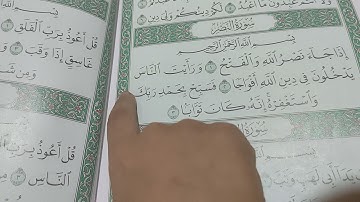 لَكُمْ دِينُكُمْ وَلِيَ دِينِ
سُورَةُ النَّصْرِ
بِسْمِ اللَّهِ الرَّحْمَٰنِ الرَّحِيمِ
إِذَا جَاءَ نَصْرُ اللَّهِ وَالْفَتْحُ ۝ وَرَأَيْتَ النَّاسَ
يَدْخُلُونَ فِي دِينِ اللَّهِ أَفْوَاجًا ۝ فَسَبِّحْ بِحَمْدِ رَبِّكَ
وَاسْتَغْفِرْهُ إِنَّهُ كَانَ تَوَّابًا ۝
سُورَةُ
بِسْمِ اللَّهِ
قُلْ أَعُوذُ بِرَبِّ الْفَلَقِ
غَاسِقٍ إِذَا وَقَبَ
وَمِن شَرِّ
قُلْ أَعُوذُ بِرَبِّ
النَّاسِ